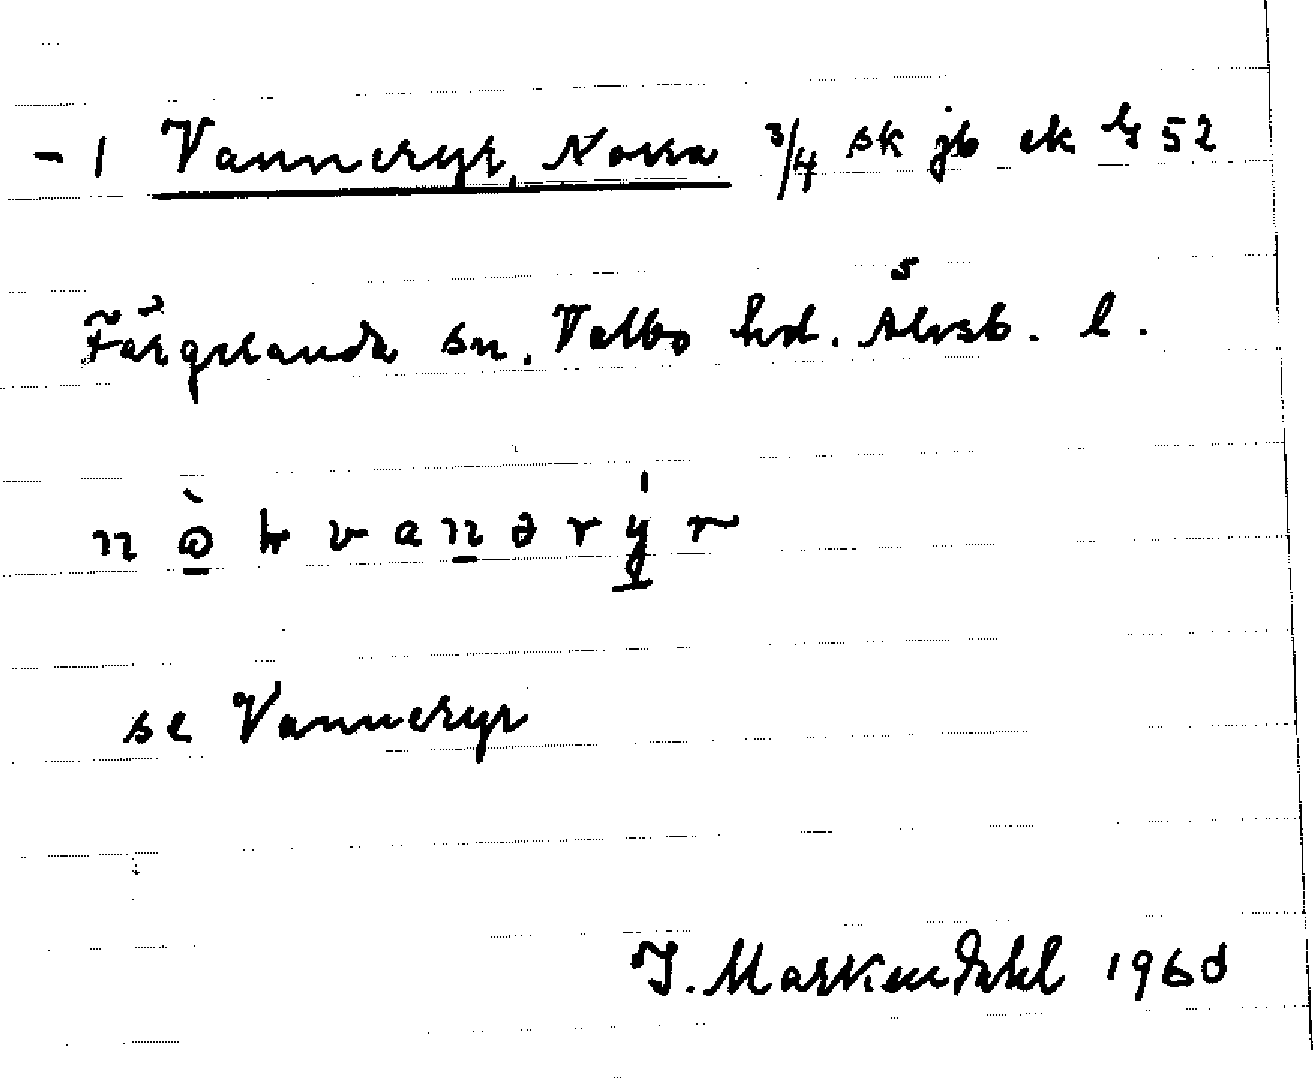 - 1 Vanneryr, Norra 3/4 sk jb ek bl 52
Färgelanda sn. Valbo hd. Älvsb. l.
5
se Vanneryr
J. Markendahl 1960